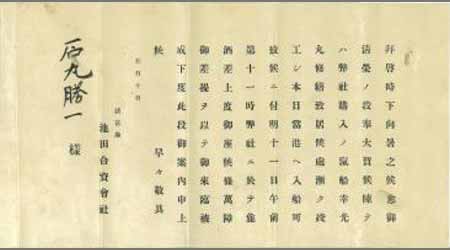 拝啓時下向暑之候愈御
清榮ノ段奉大賀候陳テ
ハ弊社購入ノ滊船幸光
丸修繕致居候處漸ク竣
工シ本日當港ヘ入船可
致候ニ付明十一日午前
第十一時弊社ニ於テ麁
酒差上度御座候條萬障
御差操ヲ以テ御来臨被
成下度此段御案内申上
候　早々敬具
池田合資會社
石丸勝一様